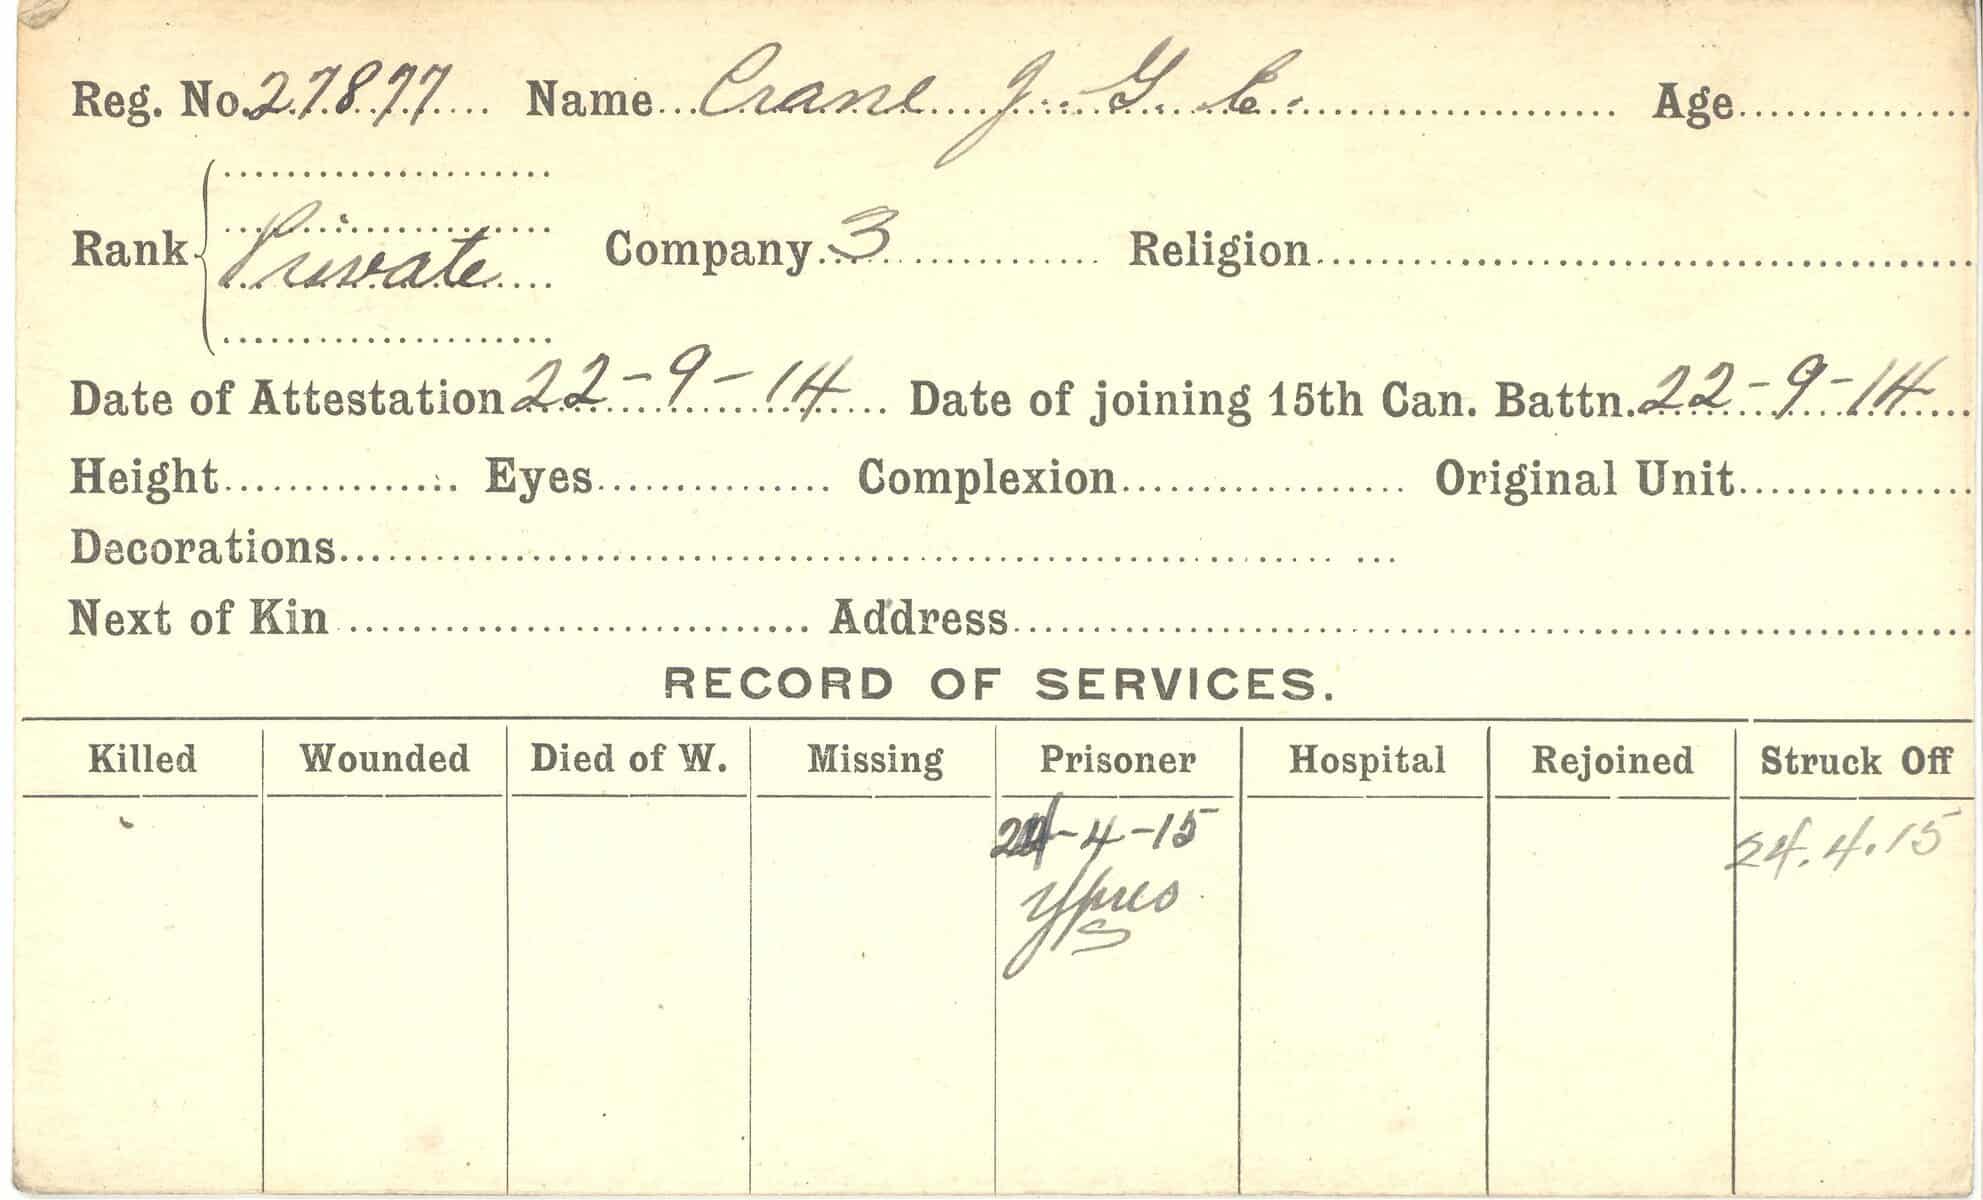 Reg. No. 27877 Name Crane J. G. C. Age
Rank Private Company 3 Religion
Date of Attestation 22-9-14 Date of joining 15th Can. Battn. 22-9-14
Height Eyes Complexion Original Unit
Decorations
Next of Kin Address
RECORD OF SERVICES.
Killed Wounded Died of W. Missing Prisoner Hospital Rejoined Struck Off
24-4-15 24.4.15
Ypres